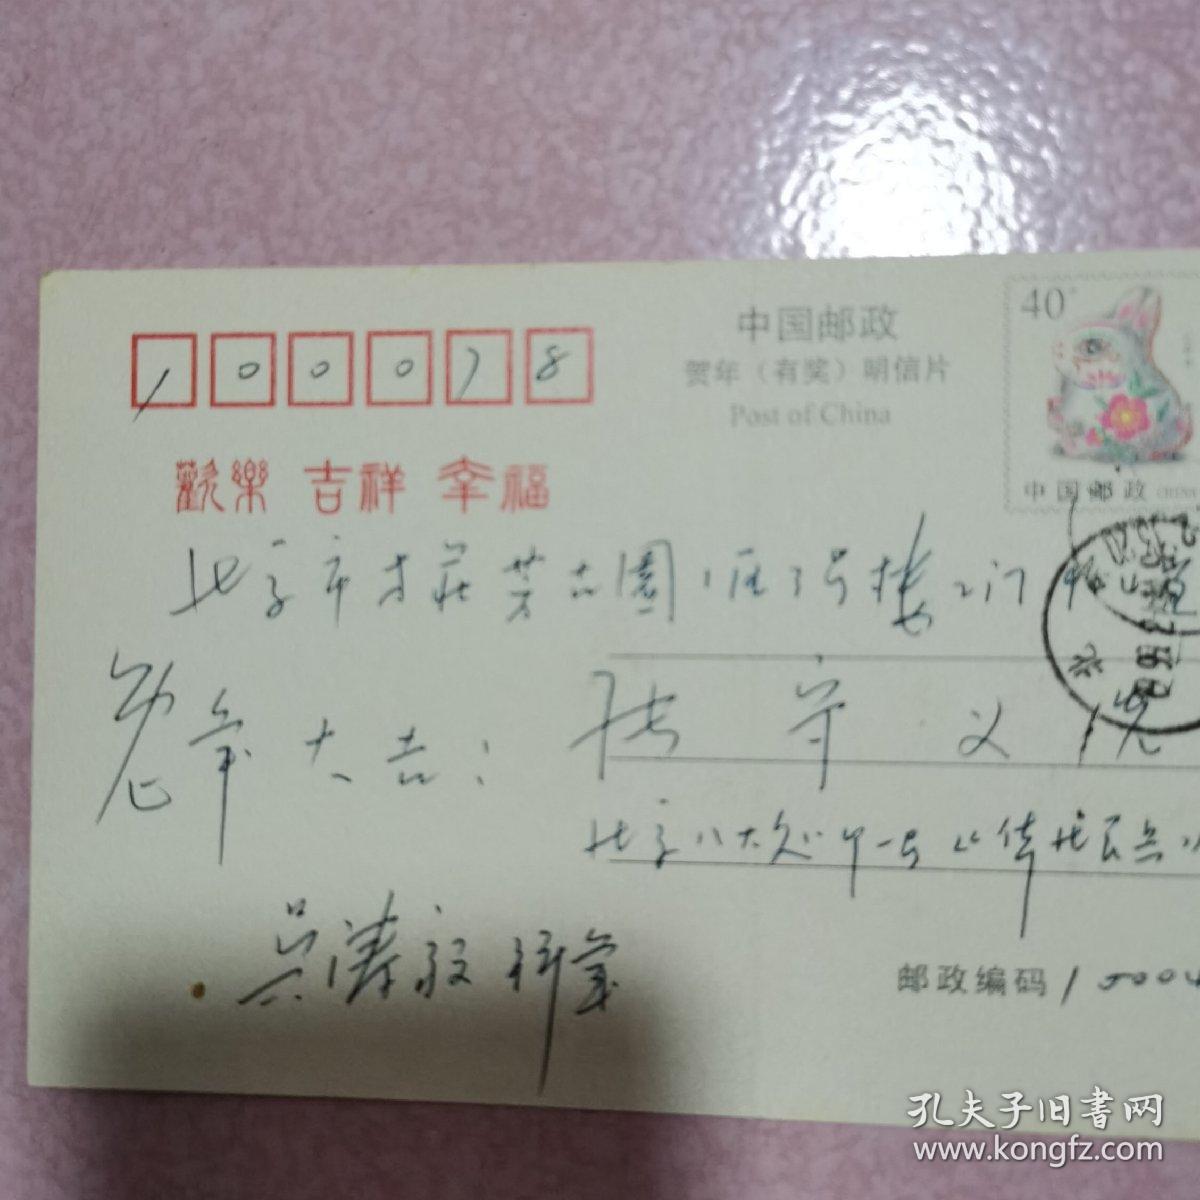 100078
中国邮政
贺年（有奖）明信片
Post of China
40
中国邮政 CHINA
歡樂 吉祥 幸福
北京市方莊芳古園1區3号楼2门
張守义 先
兔年大吉：
北京八大处甲一号
吴涛毅
邮政编码 10004
孔夫子旧书网
www.kongfz.com